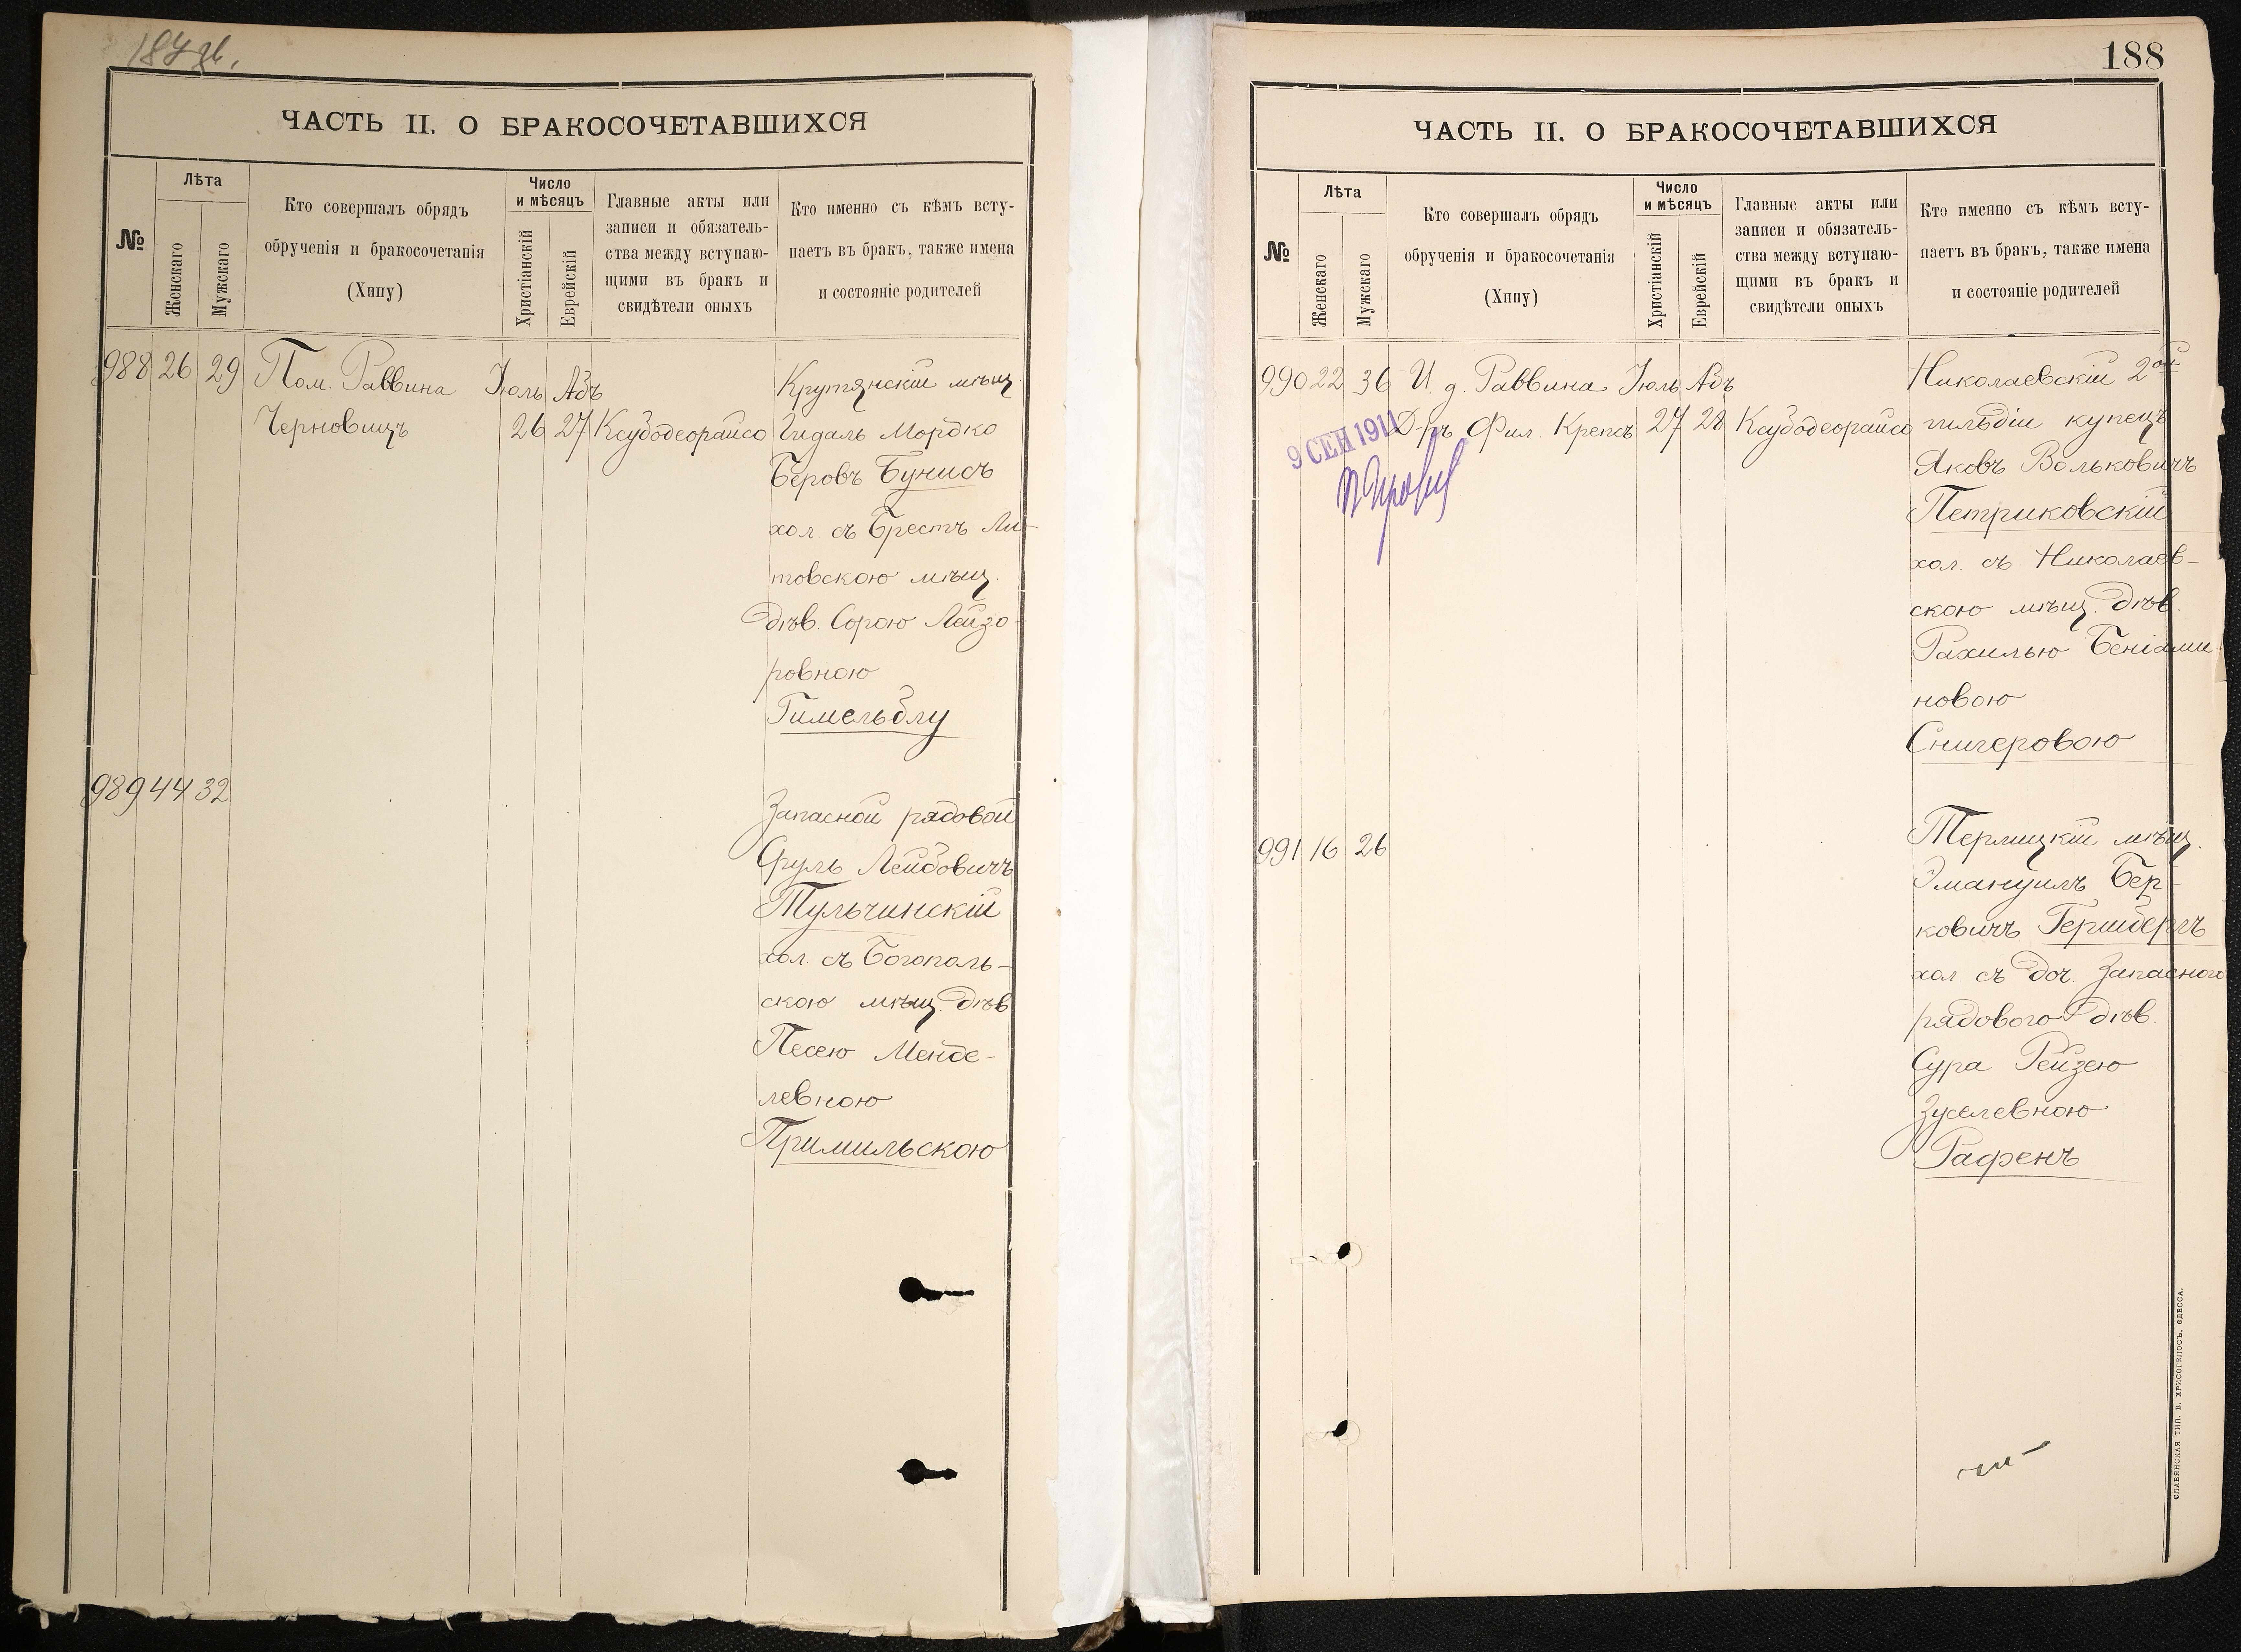 187 об.
ЧАСТЬ II. О БРАКОСОЧЕТАВШИХСЯ
№
Лѣта
Женскаго
Мужскаго
Кто совершалъ обрядъ
обрученія и бракосочетанія
(Хипу)
Число
и мѣсяцъ
Христіанскій
Еврейскій
Главные акты или
записи и обязатель-
ства между вступаю-
щими въ бракъ и
свидѣтели оныхъ
Кто именно съ кѣмъ всту-
паетъ въ бракъ, также имена
и состояніе родителей
988 26 29 Пом. Раввина Іюль Абъ Крутянскій мѣщ.
Черновицъ 26 27 Ксубодеорайсо Гидаль Мордко
Беровъ Бунисъ
хол. съ Брестъ Ли-
товскою мѣщ.
дѣв. Сорою Лейзо-
ровною
Гимельблу
989 44 32
Запасной рядовой
Сруль Лейбовичъ
Тульчинскій
хол. съ Богополь-
скою мѣщ. дѣв
Песею Менде-
левною
Примильскою
188
ЧАСТЬ II. О БРАКОСОЧЕТАВШИХСЯ
№
Лѣта
Женскаго
Мужскаго
Кто совершалъ обрядъ
обрученія и бракосочетанія
(Хипу)
Число
и мѣсяцъ
Христіанскій
Еврейскій
Главные акты или
записи и обязатель-
ства между вступаю-
щими въ бракъ и
свидѣтели оныхъ
Кто именно съ кѣмъ всту-
паетъ въ бракъ, также имена
и состояніе родителей
990 22 36 И. д. Раввина Іюль Абъ Николаевскій 2ой
Д-ръ Фил. Крепсъ 27 28 Ксубодеорайсо гильдіи купецъ
9 СЕН 1911
Яковъ Вольковичъ
Петриковскій
хол. съ Николаев-
скою мѣщ. дѣв.
Рахилью Беніами-
новою
Снигеровою
991 16 26
Терлицкій мѣщ.
Эмануилъ Бер-
ковичъ Гершбергъ
хол. съ доч. Запасного
рядового дѣв.
Сура Рейзею
Зуселевною
Рафенъ
СЛАВЯНСКАЯ ТИП. Е. ХРИСОГЕЛОСЪ, ОДЕССА.